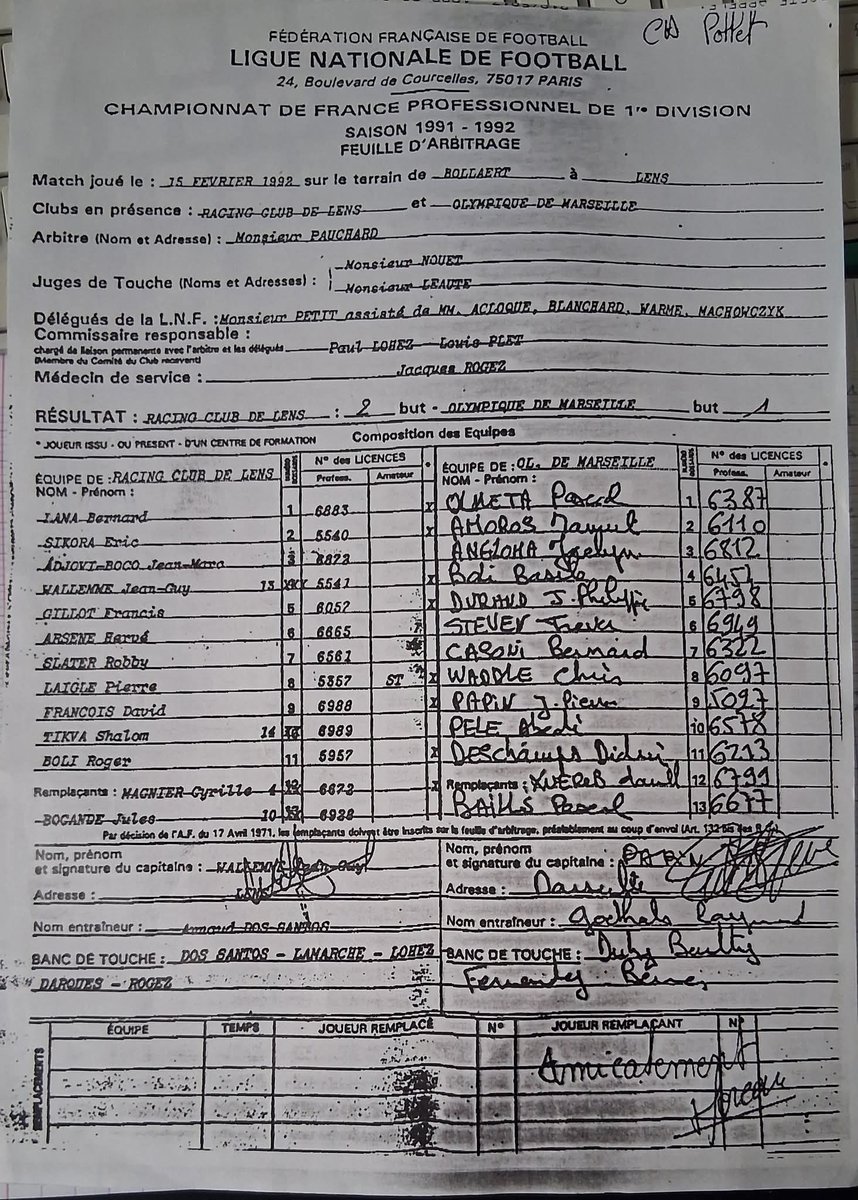 FÉDÉRATION FRANÇAISE DE FOOTBALL
LIGUE NATIONALE DE FOOTBALL
24, Boulevard de Courcelles, 75017 PARIS
CHAMPIONNAT DE FRANCE PROFESSIONNEL DE 1re DIVISION
SAISON 1991 - 1992
FEUILLE D'ARBITRAGE
Match joué le : 15 FEVRIER 1992 sur le terrain de BOLLAERT à LENS
Clubs en présence : RACING CLUB DE LENS et OLYMPIQUE DE MARSEILLE
Arbitre (Nom et Adresse) : Monsieur PAUCHARD
Juges de Touche (Noms et Adresses) : Monsieur NOUET
Monsieur LEAUTE
Délégués de la L.N.F. : Monsieur PETIT assisté de MM. ACLOQUE, BLANCHARD, WARME, MACHOWCZYK
Commissaire responsable :
chargé de liaison permanente avec l'arbitre et les délégués Paul LOHEZ - Louis PLET
(Membre du Comité du Club recevant)
Médecin de service : Jacques ROGEZ
RÉSULTAT : RACING CLUB DE LENS : 2 but - OLYMPIQUE DE MARSEILLE but 1
* JOUEUR ISSU - OU PRESENT - D'UN CENTRE DE FORMATION Composition des Equipes
ÉQUIPE DE : RACING CLUB DE LENS N° des LICENCES * ÉQUIPE DE : OL. DE MARSEILLE N° des LICENCES *
NOM - Prénom : Profess. Amateur NOM - Prénom : Profess. Amateur
LAMA Bernard 1 6883 x OLMETA Pascal 1 6387
SIKORA Eric 2 5540 x AMOROS Manuel 2 6110
ADJOVI-BOCO Jean-Marc 3 6873 ANGLOMA Jocelyn 3 6812
WALLEMME Jean-Guy 13 5541 x Boli Basile 4 6452
GILLOT Francis 5 6057 x DURAND J.Philippe 5 6798
ARSENE Hervé 6 6665 STEVEN Trevor 6 6949
SLATER Robby 7 6561 CASONI Bernard 7 6322
LAIGLE Pierre 8 5357 ST x WADDLE Chris 8 6097
FRANCOIS David 9 6988 x PAPIN J.Pierre 9 5097
TIKVA Shalom 14 6989 PELE Abedi 10 6578
BOLI Roger 11 5957 x DESCHAMPS Didier 11 6213
Remplaçants : MAGNIER Cyrille 4 6673 x Remplaçants : XUEREB daniel 12 6799
BOCANDE Jules 10 6938 BAILLS Pascal 13 6677
Par décision de l'A.F. du 17 Avril 1971, les remplaçants doivent être inscrits sur la feuille d'arbitrage, préalablement au coup d'envoi (Art. 132 bis des R.G.)
Nom, prénom
et signature du capitaine : WALLEMME Jean Guy
Adresse : LENS
Nom entraîneur : Arnaud DOS SANTOS
BANC DE TOUCHE : DOS SANTOS - LAMARCHE - LOHEZ
DARQUES - ROGEZ
Nom, prénom
et signature du capitaine : PAPIN
Adresse : Marseille
Nom entraîneur : Goethals Raymond
BANC DE TOUCHE :
Fernandez
REMPLACEMENTS
ÉQUIPE TEMPS JOUEUR REMPLACÉ N° JOUEUR REMPLAÇANT N°
Amicalement